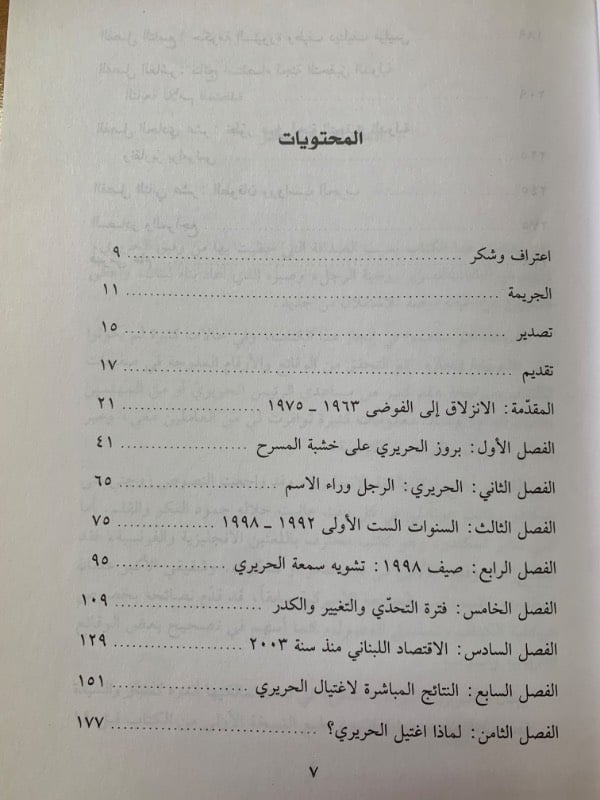 المحتويات
اعتراف وشكر ........ ٩
الجريمة ........ ١١
تصدير ........ ١٥
تقديم ........ ١٧
المقدّمة: الانزلاق إلى الفوضى ١٩٦٣ ـ ١٩٧٥ ........ ٢١
الفصل الأول: بروز الحريري على خشبة المسرح ........ ٤١
الفصل الثاني: الحريري: الرجل وراء الاسم ........ ٦٥
الفصل الثالث: السنوات الست الأولى ١٩٩٢ ـ ١٩٩٨ ........ ٧٥
الفصل الرابع: صيف ١٩٩٨: تشويه سمعة الحريري ........ ٩٥
الفصل الخامس: فترة التحدّي والتغيير والكدر ........ ١٠٩
الفصل السادس: الاقتصاد اللبناني منذ سنة ٢٠٠٣ ........ ١٢٩
الفصل السابع: النتائج المباشرة لاغتيال الحريري ........ ١٥١
الفصل الثامن: لماذا اغتيل الحريري؟ ........ ١٧٧
٧